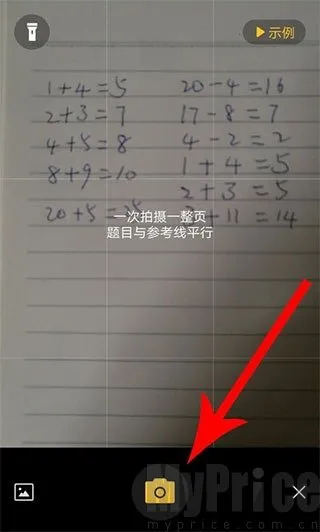 示例
1+4=5
2+3=7
4+5=8
8+9=10
20+5=25
20-4=16
17-8=7
4-2=2
1+4=5
2+3=5
+11=14
一次拍摄一整页
题目与参考线平行
MyPrice
www.myprice.com.cn